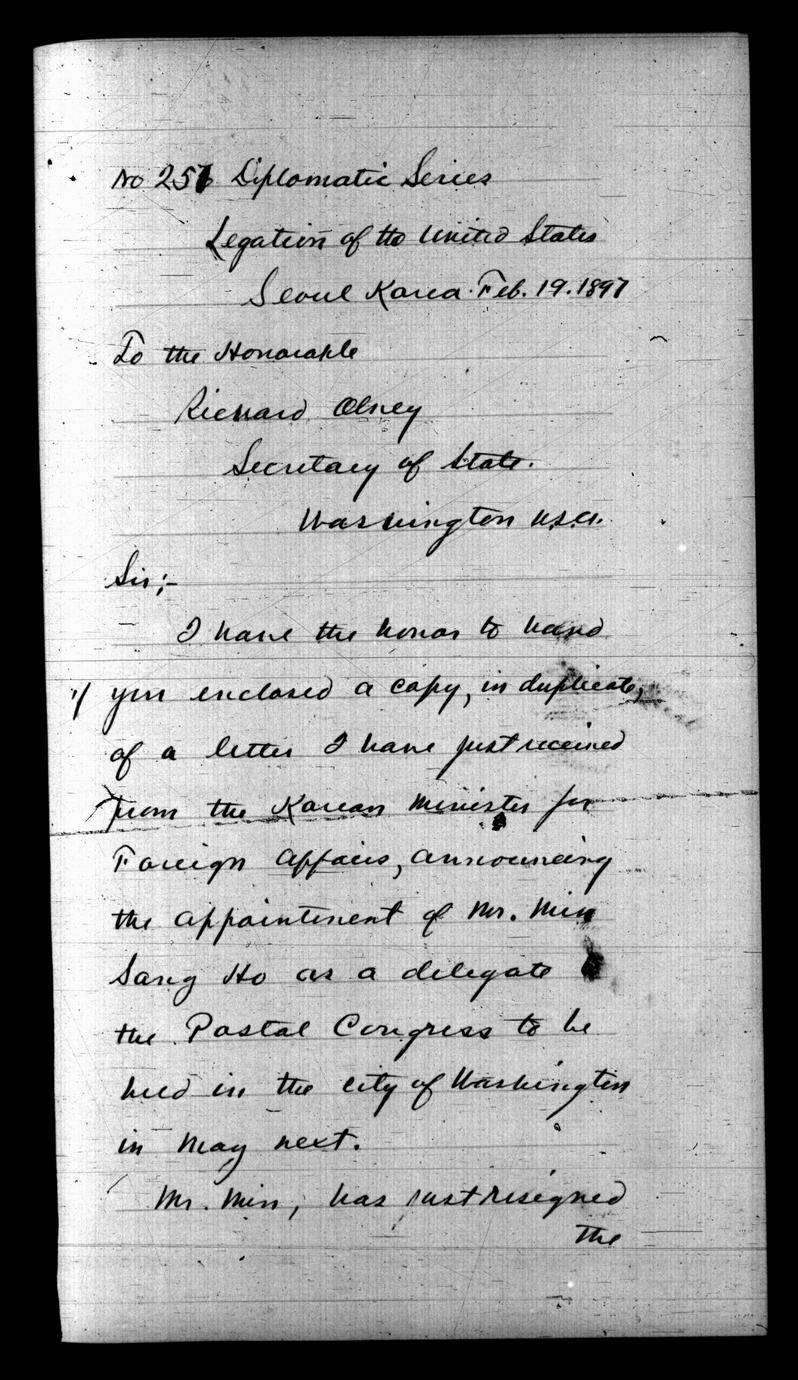 No 256 Diplomatic Series
Legation of the United States
Seoul Korea. Feb. 19. 1897
To the Honorable
Richard Olney
Secretary of State.
Washington U.S.A.
Sir;-
I have the honor to hand
1/ you enclosed a copy, in duplicate,
of a letter I have just received
from the Korean Minister for
Foreign Affairs, announcing
the appointment of Mr. Min
Sang Ho as a delegate to
the Postal Congress to be
held in the city of Washington
in May next.
Mr. Min, has just resigned
the